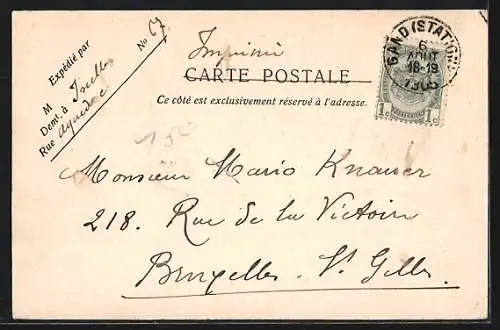 Expédié par
M
Domt. à Ixelles
Rue aqueduc
No 67
Imprimé
CARTE POSTALE
Ce côté est exclusivement réservé à l'adresse.
GAND (STATION)
6
AOUT
18-19
1905
1c 1c
150
Monsieur Mario Knauer
218. Rue de la Victoire
Bruxelles. St Gilles.